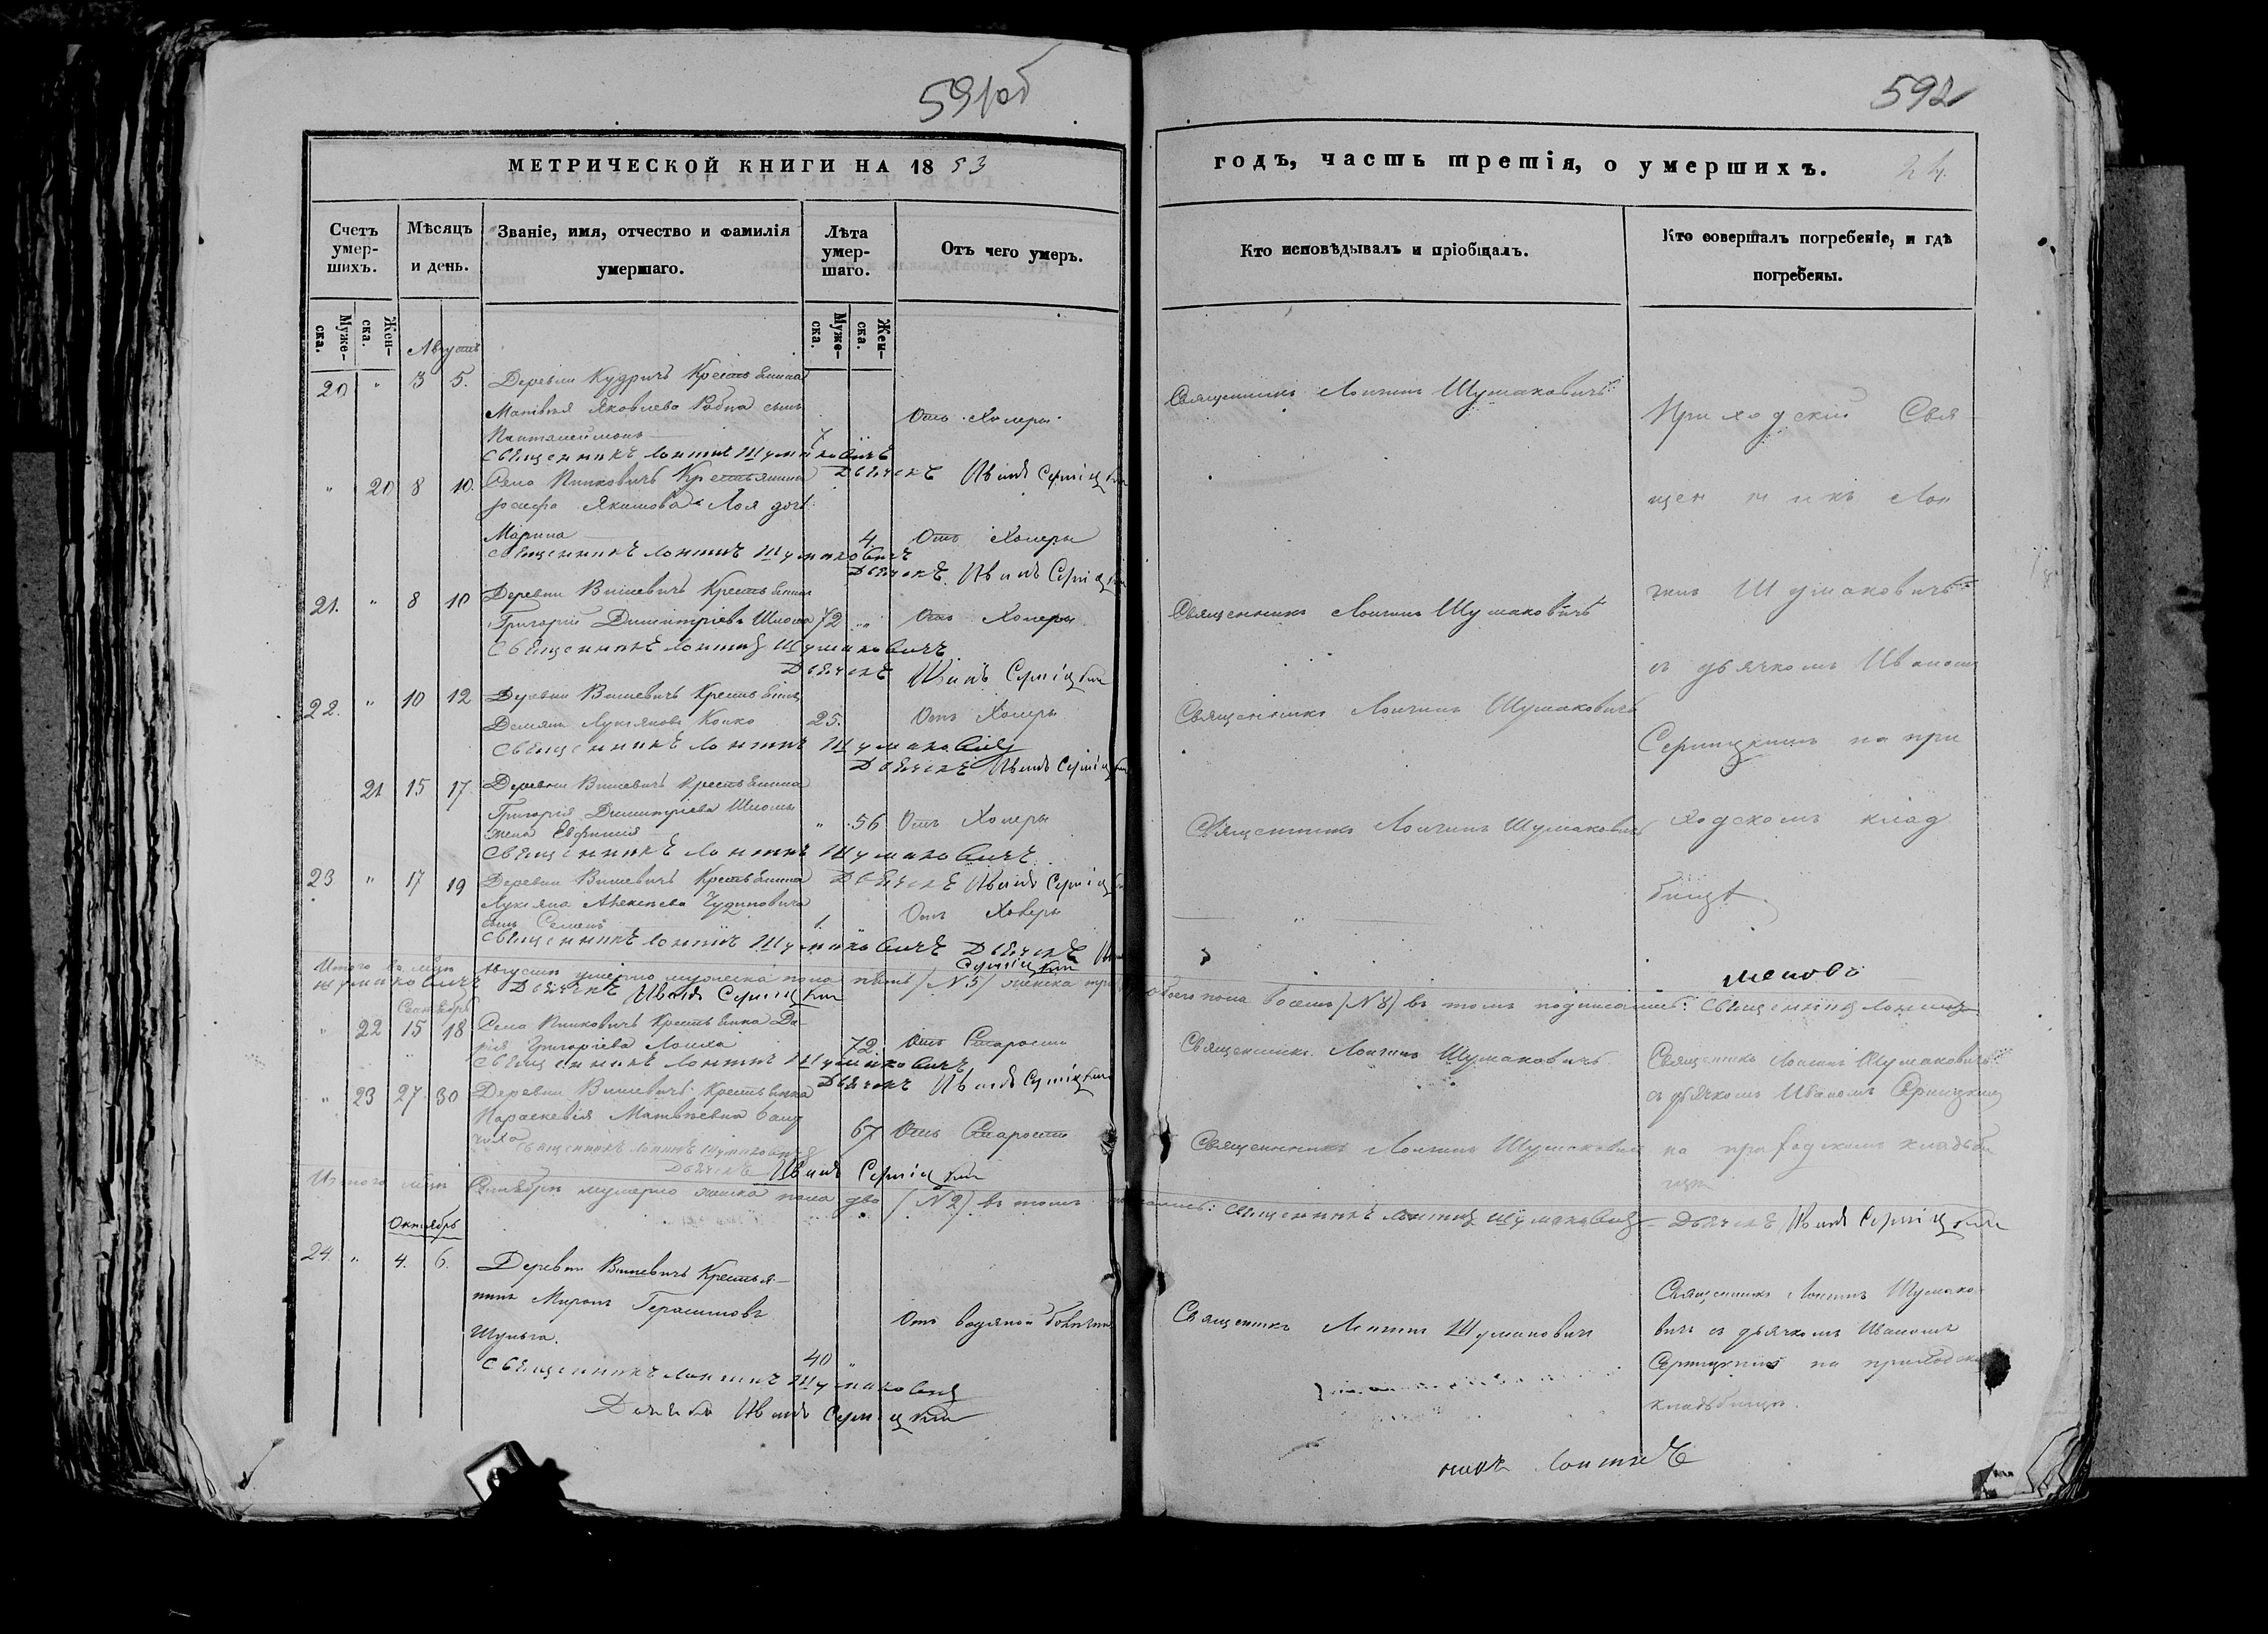 591 об
МЕТРИЧЕСКОЙ КНИГИ НА 1853
Счетъ умер-шихъ.
Мѣсяцъ и день.
Званіе, имя, отчество и фамилія умершаго.
Лѣта умер-шаго.
Отъ чего умеръ.
Муже-ска.
Жен-ска.
Муже-ска.
Жен-ска.
Августъ
20 " 3 5. Деревни Кудричъ Крестьянина
Матвѣя Яковлева сынъ
Пантелеймонъ 7 Отъ Холеры
Священникъ Лонгинъ Шумаковичъ
Дьячекъ Иванъ Серницкій
" 20 8 10. Села Пинковичъ Крестьянина
Якимова дочь
Марина 4. Отъ Холеры
Священникъ Лонгинъ Шумаковичъ
Дьячекъ Иванъ Серницкій
21. " 8 10 Деревни Вишевичъ Крестьянинъ
Григорій Димитріевъ 72 " Отъ Холеры
Священникъ Лонгинъ Шумаковичъ
Дьячекъ Иванъ Серницкій
22. " 10 12 Деревни Вишевичъ Крестьянинъ
Демянъ Лукяновъ 25. Отъ Холеры
Священникъ Лонгинъ Шумаковичъ
Дьячекъ Иванъ Серницкій
21 15 17 Деревни Вишевичъ Крестьянина
Григорія Димитріева
жена Евфимія " 56 Отъ Холеры
Священникъ Лонгинъ Шумаковичъ
Дьячекъ Иванъ Серницкій
23 " 17 19 Деревни Вишевичъ Крестьянина
Лукяна Алексѣева
сынъ Семенъ 1. Отъ Холеры
Священникъ Лонгинъ Шумаковичъ Дьячекъ Иванъ
Серницкій
Итого въ мцѣ Августѣ умерло мужеска пола пять /№5/ женска три
Шумаковичъ Дьячекъ Иванъ Серницкій
Сентябрь
" 22 15 18 Села Пинковичъ Крестьянка Да-
рія Григоріева 72 Отъ Старости
Священникъ Лонгинъ Шумаковичъ
Дьячекъ Иванъ Серницкій
" 23 27 30 Деревни Вишевичъ Крестьянка
Параскевія Матвѣевна
67 Отъ Старости
Священникъ Лонгинъ Шумаковичъ
Дьячекъ Иванъ Серницкій
Итого мцѣ Сентябрѣ умерло женска пола два /№2/ въ томъ
Октябрь
24. " 4. 6. Деревни Вишевичъ Крестья-
нинъ Миронъ Герасимовъ
Шульга. 40 " Отъ водяной болѣзни
Священникъ Лонгинъ Шумаковичъ
Дьячекъ Иванъ Серницкій
592
годъ, часть третія, о умершихъ.
24.
Кто исповѣдывалъ и пріобщалъ.
Кто совершалъ погребеніе, и гдѣ погребены.
Священникъ Лонгинъ Шумаковичъ
Священникъ Лонгинъ Шумаковичъ
Священникъ Лонгинъ Шумаковичъ
Священникъ Лонгинъ Шумаковичъ
Приходскій Свя-
щенникъ Лон
гинъ Шумаковичъ
съ дьячкомъ Иваномъ
Серницкимъ на при
ходскомъ клад
бищѣ
обоего пола восемь /№8/ въ томъ подписались: Священникъ Лонгинъ
Священникъ Лонгинъ Шумаковичъ
Священникъ Лонгинъ Шумаковичъ
Священникъ Лонгинъ Шумаковичъ
съ дьячкомъ Иваномъ Серницкимъ
на приходскомъ кладби
щѣ
Священникъ Лонгинъ Шумаковичъ Дьячекъ Иванъ Серницкій
Священникъ Лонгинъ Шумаковичъ
Священникъ Лонгинъ Шумако-
вичъ съ дьячкомъ Иваномъ
Серницкимъ на приходском
кладбищѣ.
никъ Лонгинъ